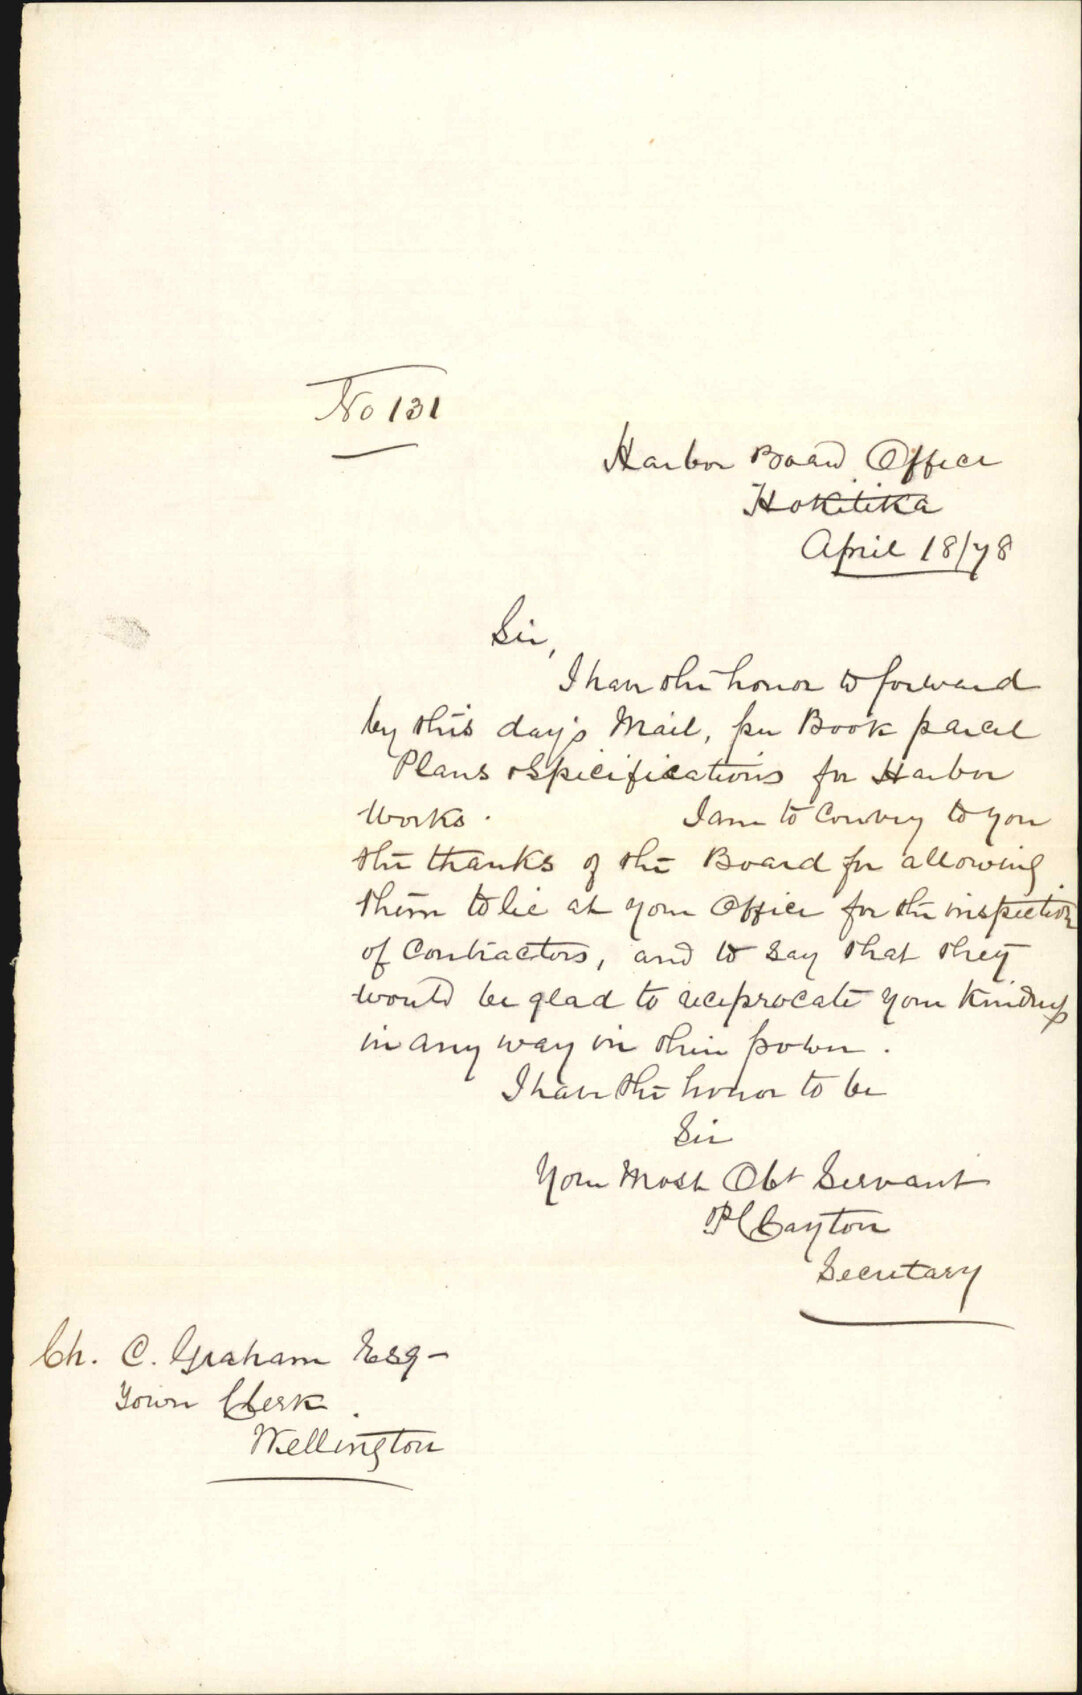 No 131
Harbor Board Office
Hokitika
April 18/78
Sir,
I have the honor to forward
by this day's Mail, per Book parcel
Plans & Specifications for Harbor
Works. I am to convey to you
the thanks of the Board for allowing
them to lie at your Office for the inspection
of Contractors, and to say that they
would be glad to reciprocate your Kindness
in any way in their power.
I have the honor to be
Sir
Your Most Obt Servant
Cayton
Secretary
Ch. C. Graham Esq-
Town Clerk.
Wellington